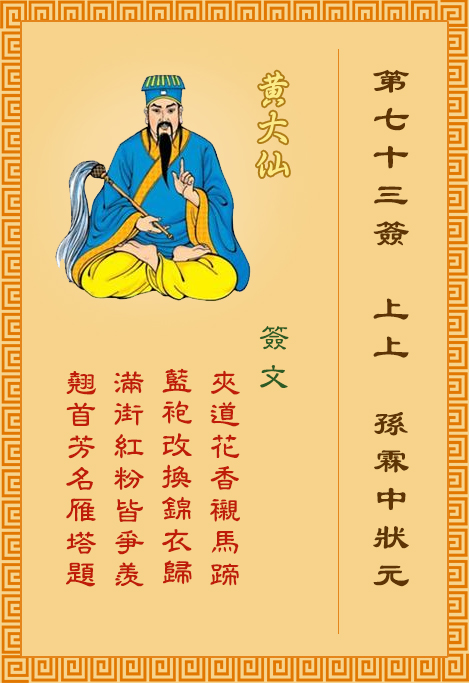 第七十三簽 上上 孫霖中狀元
黃大仙
簽文
夾道花香襯馬蹄
藍袍改換錦衣歸
滿街紅粉皆爭羨
翹首芳名雁塔題